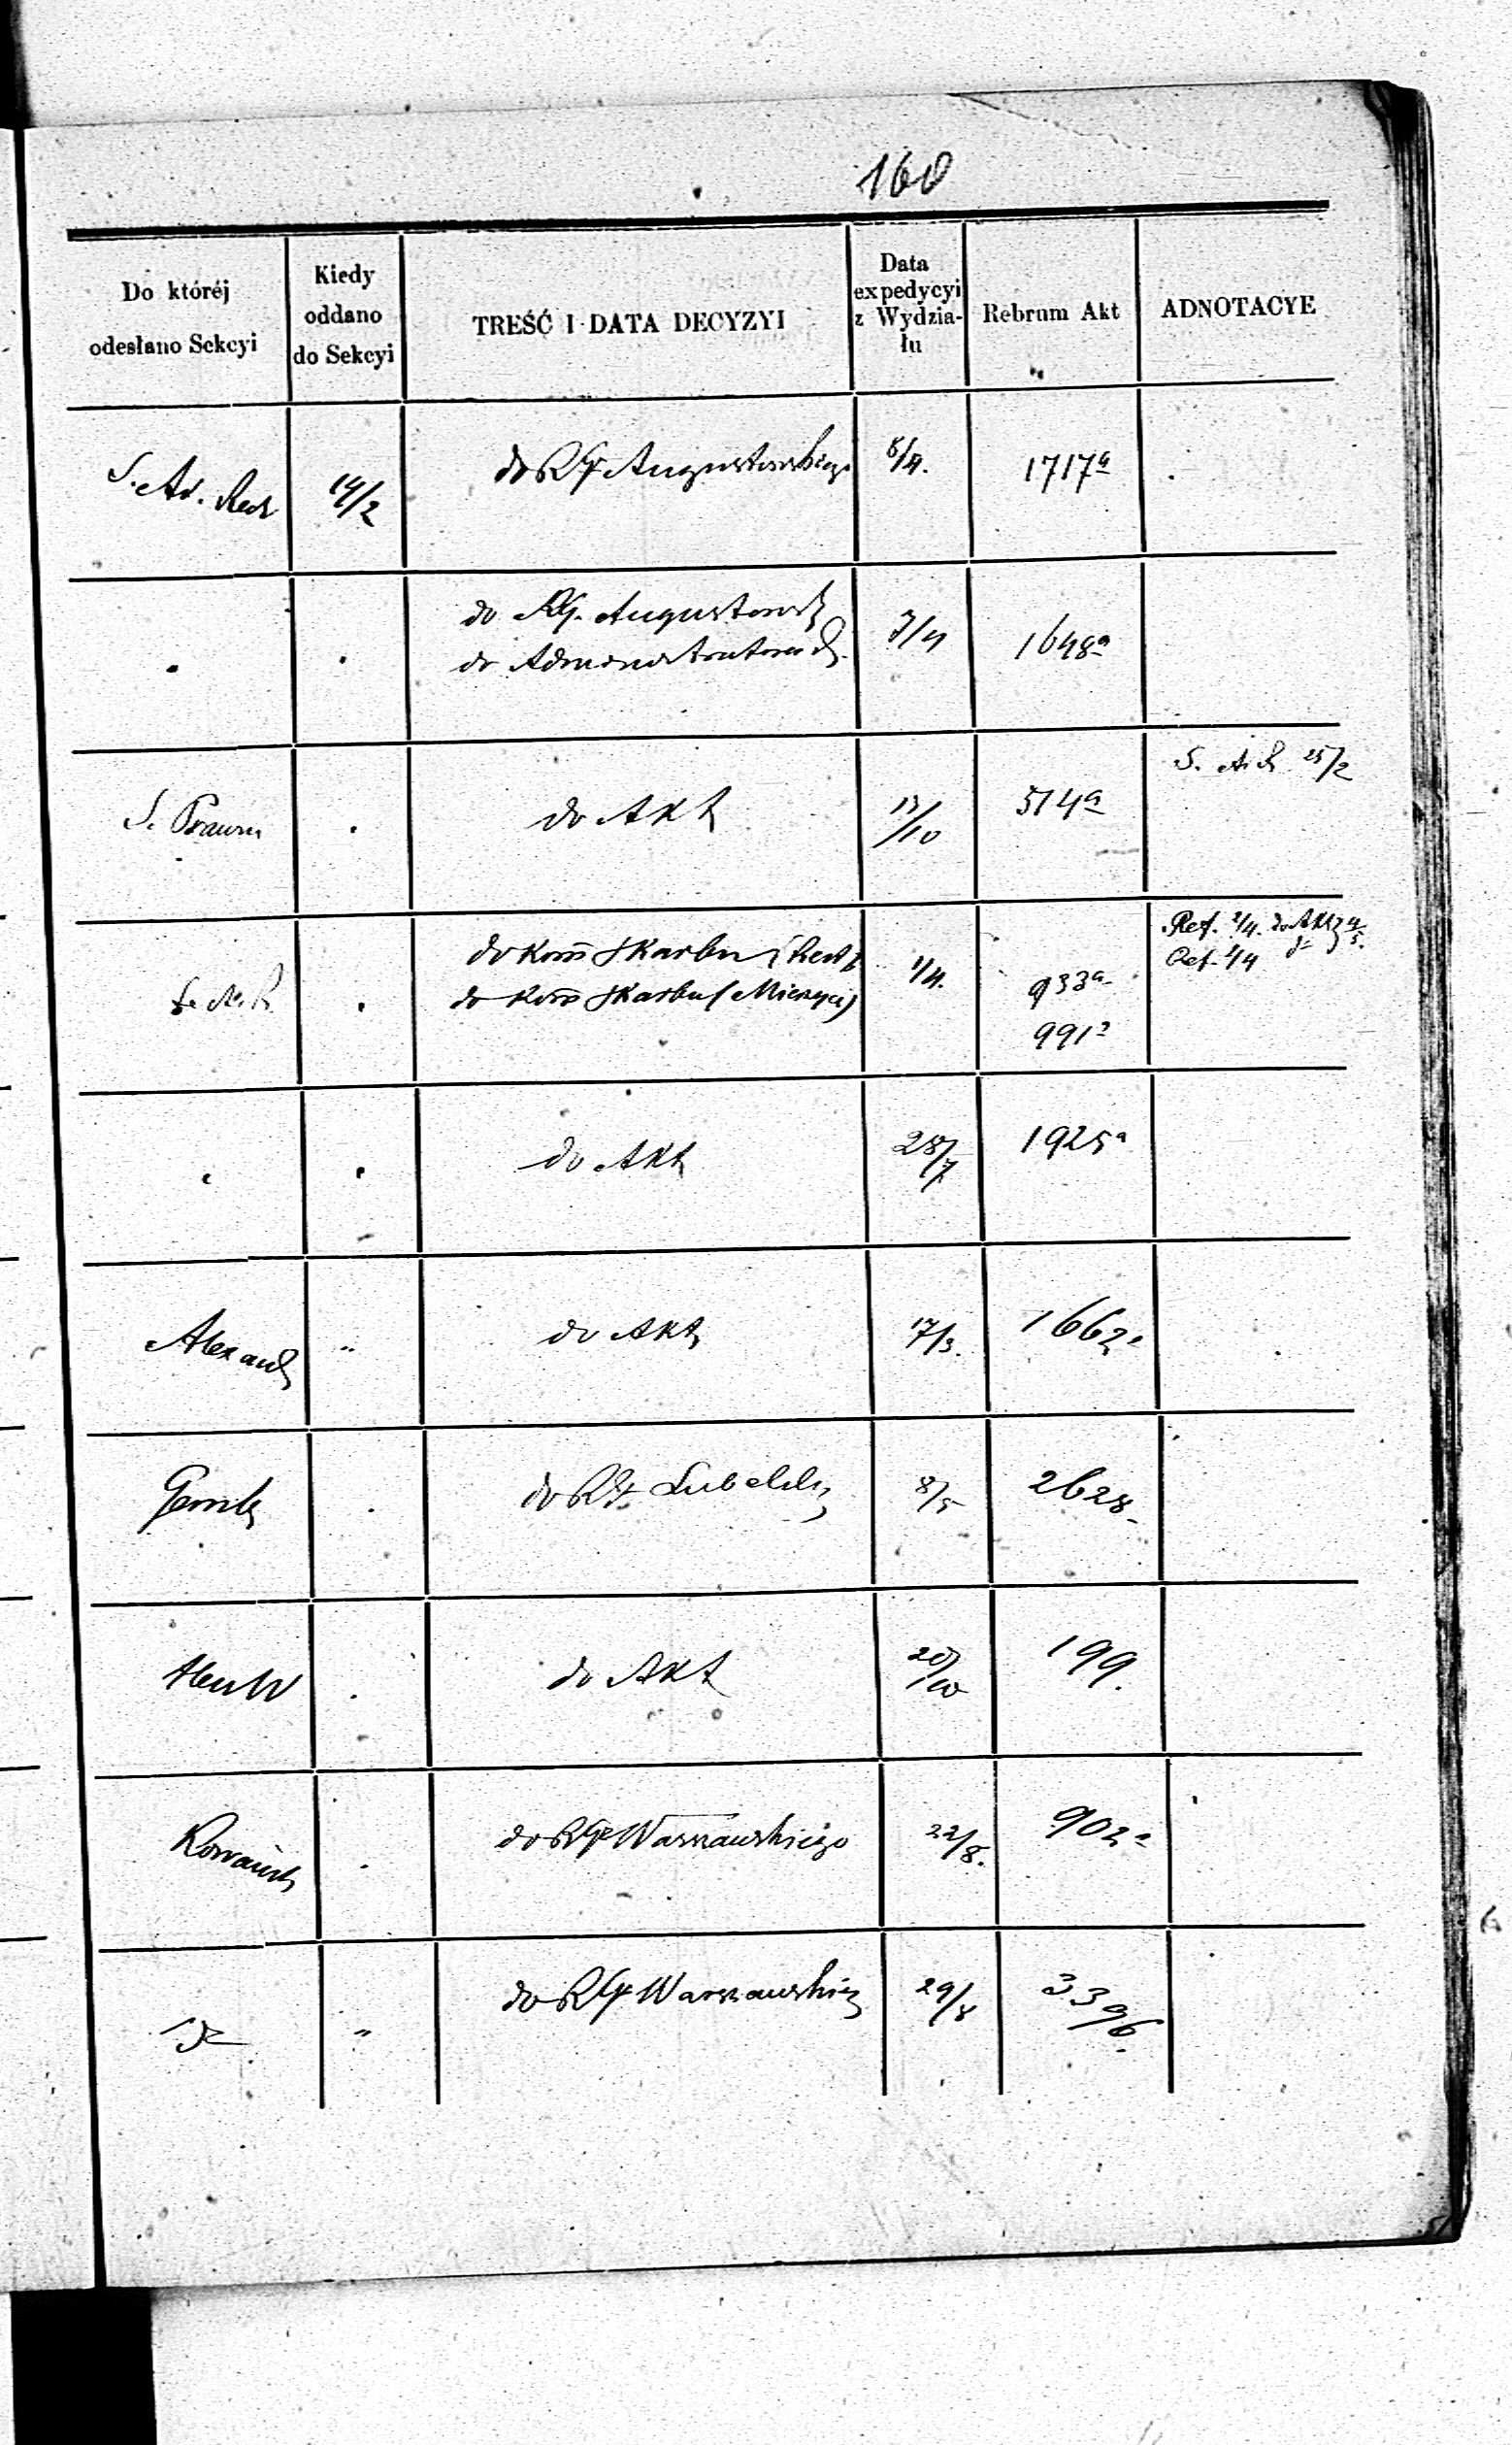 160
Do któréj odesłano Sekcyi
Kiedy oddano do Sekcyi
TREŚĆ I DATA DECYZYI
Data expedycyi z Wydziału
Rebrum Akt
ADNOTACYE
S. Ad. Rech 14/2 do RG Augustowskiego 8/4. 1717a
do RG. Augustowsk
do Administratora 7/4 1648a
S. Prawn do Akt 13/10 514a S. A. R 25/2
do Kom Skarbu Ref. 2/4. do Akt
S. A. R. do Kom Skarbu 1/4. 933a Ref.
991a
do Akt 28/7 1925a
Alexand " do Akt 17/3. 1662a
do RG. Lubelsk 8/5 2628
do Akt 20/10 199.
do RG Warszawskiego 22/8. 902a
" do RG Warszawskie 29/8 3396